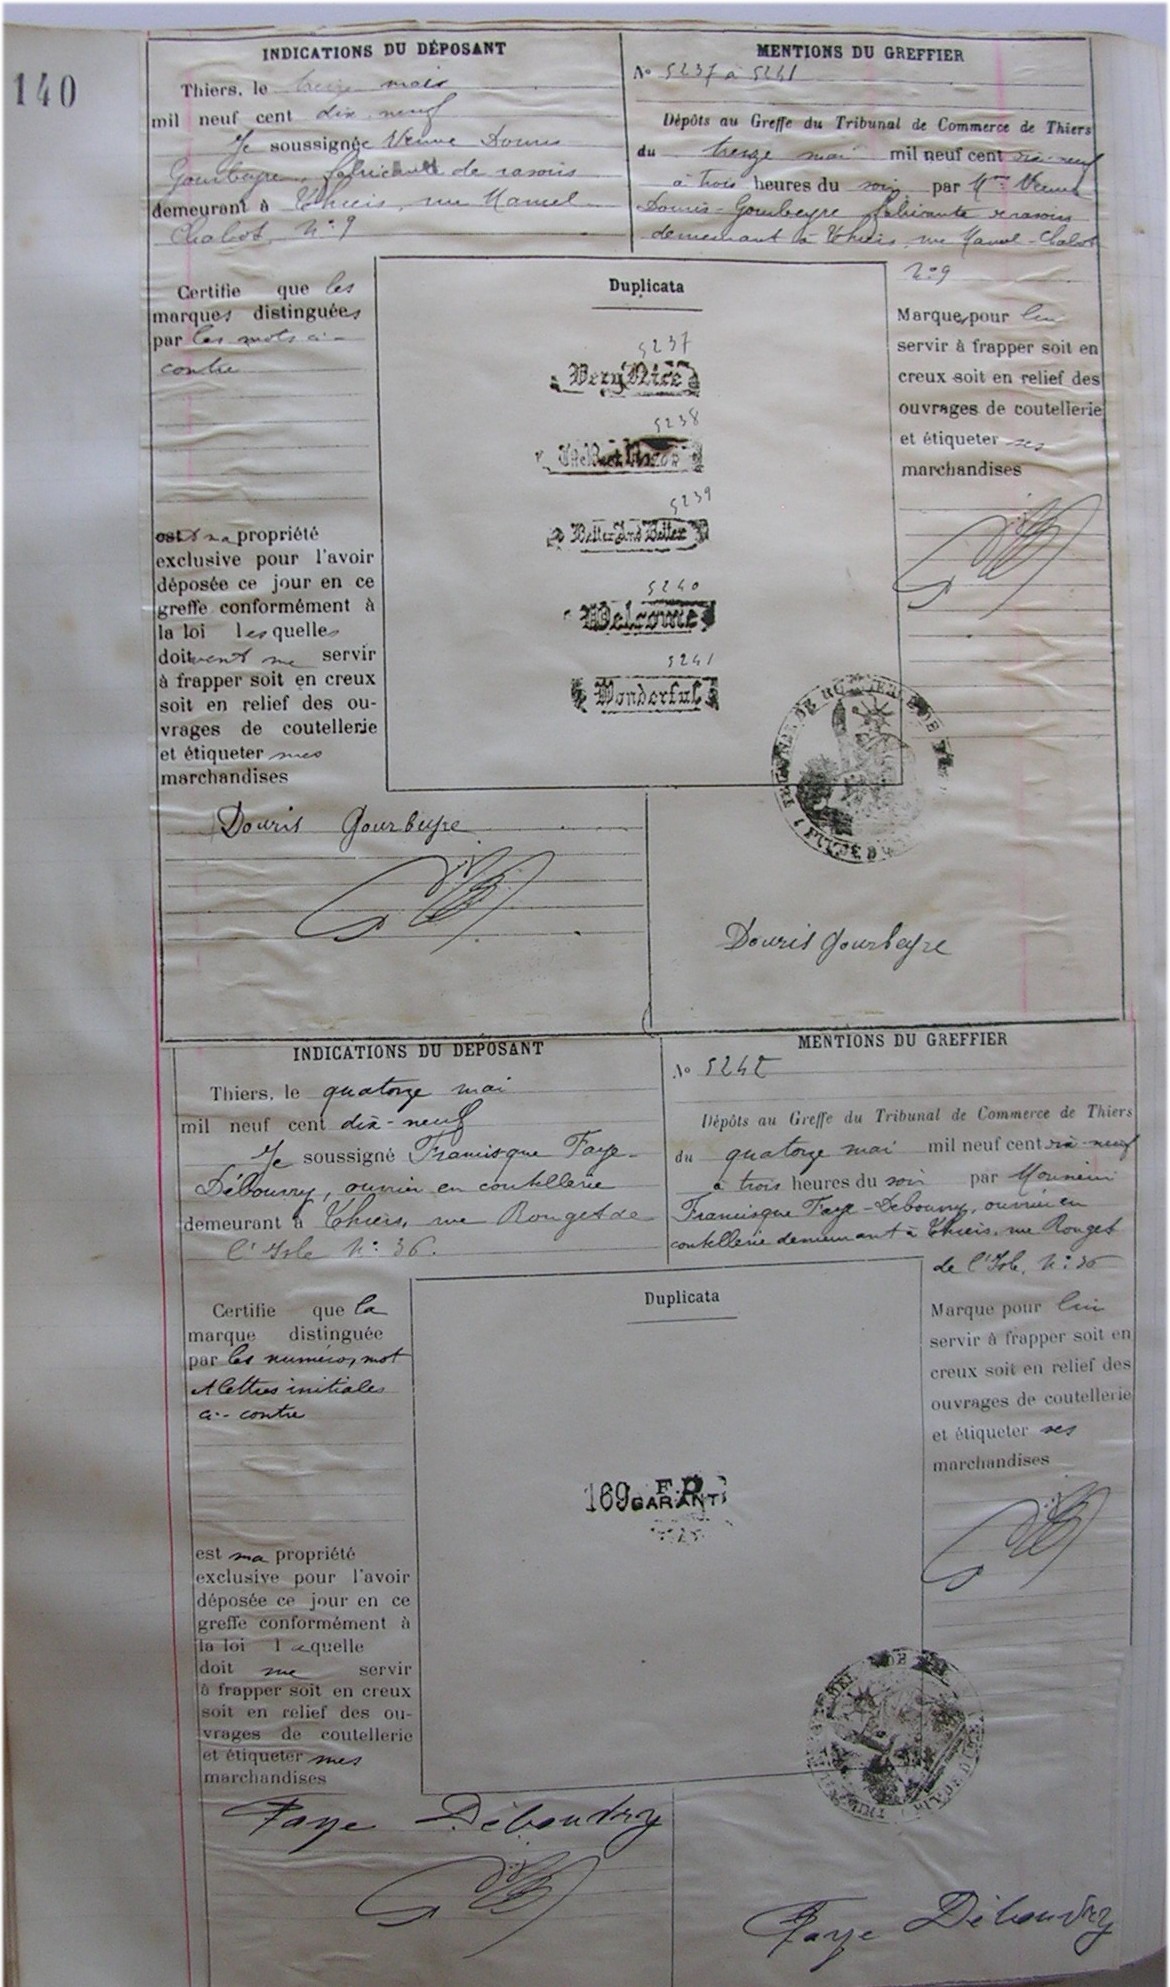 140
INDICATIONS DU DÉPOSANT
Thiers, le treize mai
mil neuf cent dix neuf
Je soussignée Veuve Douris
Gourbeyre, fabricante de rasoirs
demeurant à Thiers, rue Mancel
Chabot, N° 9
MENTIONS DU GREFFIER
No 5237 à 5241
Dépôts au Greffe du Tribunal de Commerce de Thiers
du treize mai mil neuf cent dix-neuf
à trois heures du soir par Mme Veuve
Douris-Gourbeyre fabricante rasoirs
demeurant à Thiers, rue Mancel-Chabot
N° 9
Certifie que les
marques distinguées
par les mots ci-
contre
est ma propriété
exclusive pour l'avoir
déposée ce jour en ce
greffe conformément à
la loi lesquelles
doivent me servir
à frapper soit en creux
soit en relief des ou-
vrages de coutellerie
et étiqueter mes
marchandises
Duplicata
5237
Very Nice
5238
5239
Better And Better
5240
Welcome
5241
Wonderful
Marques pour lui
servir à frapper soit en
creux soit en relief des
ouvrages de coutellerie
et étiqueter ses
marchandises
Douris Gourbeyre
Douris Gourbeyre
INDICATIONS DU DÉPOSANT
Thiers, le quatorze mai
mil neuf cent dix-neuf
Je soussigné Francisque Faye-
Débouvry, ouvrier en coutellerie
demeurant à Thiers, rue Rouget de
l'Isle N° 36.
MENTIONS DU GREFFIER
No 5242
Dépôts au Greffe du Tribunal de Commerce de Thiers
du quatorze mai mil neuf cent dix-neuf
à trois heures du soir par Monsieur
Francisque Faye-Debouvry, ouvrier en
coutellerie demeurant à Thiers, rue Rouget
de l'Isle, N° 36
Certifie que la
marque distinguée
par les numéro, mot
et lettres initiales
ci-contre
est ma propriété
exclusive pour l'avoir
déposée ce jour en ce
greffe conformément à
la loi laquelle
doit me servir
à frapper soit en creux
soit en relief des ou-
vrages de coutellerie
et étiqueter mes
marchandises
Duplicata
169 F.D.
GARANTI
Marque pour lui
servir à frapper soit en
creux soit en relief des
ouvrages de coutellerie
et étiqueter ses
marchandises
Faye Débouvry
Faye Débouvry